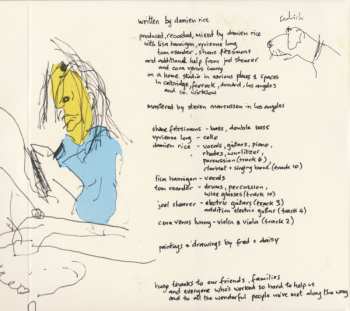 written by damien rice
produced, recorded, mixed by damien rice
with lisa hannigan, vyvienne long,
tom osander, shane fitzsimons
and additional help from joel shearer
and cora venus lunny
in a home studio in various places & spaces
in celbridge, for france, donard, los angeles
and co. wicklow
mastered by steven marcussen in los angeles
shane fitzsimons - bass, double bass
vyvienne long - cello
damien rice - vocals, guitars, piano,
rhodes, wurlitzer,
percussion (track 6)
clarinet + singing bowl (track 10)
lisa hannigan - vocals
tom osander - drums, percussion,
wine glasses (track 10)
joel shearer - electric guitars (track 3)
addition electric guitar (track 4)
cora venus lunny - violin & viola (track 2)
paintings & drawings by fred & daisy
huge thanks to our friends, families
and everyone who's worked so hard to help us
and to all the wonderful people we've met along the way